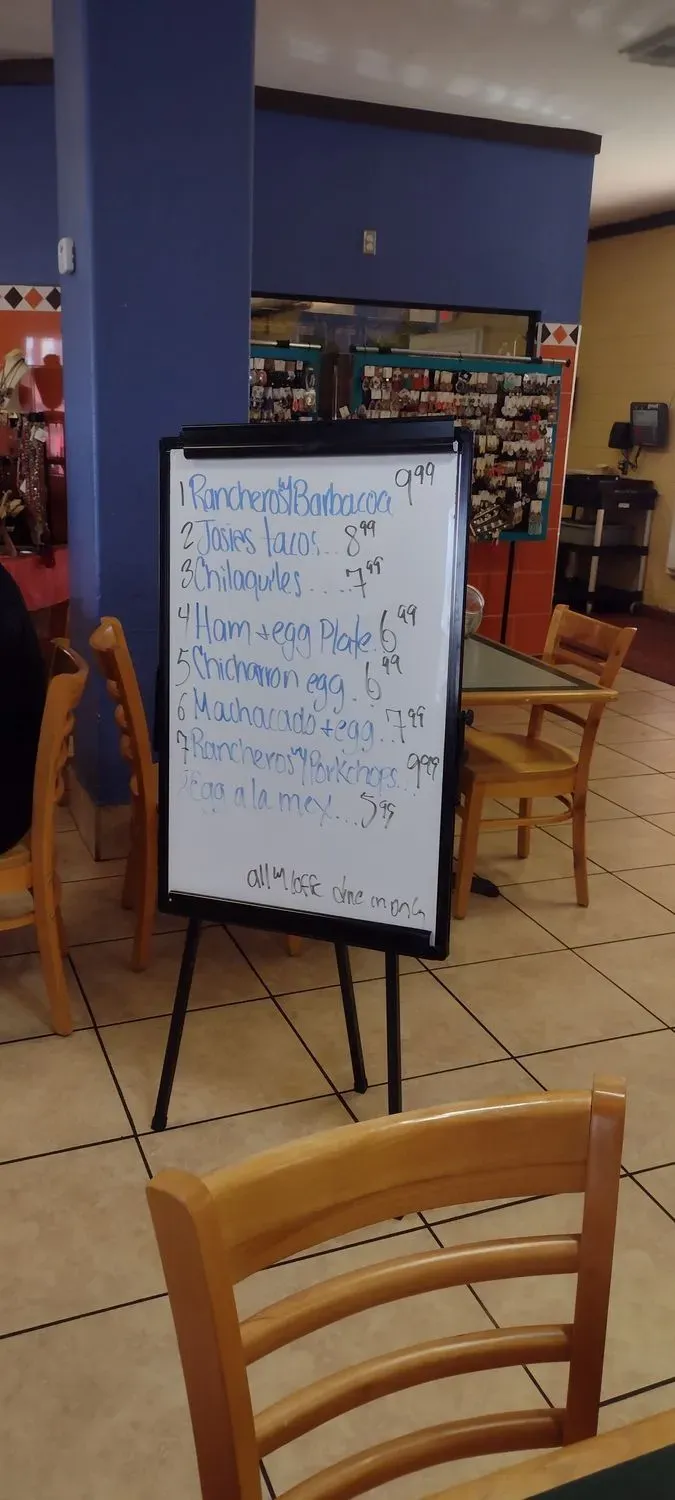 1 Rancheros w/ Barbacoa 9.99
2 Josies tacos... 8.99
3 Chilaquiles .... 7.99
4 Ham + egg Plate. 6.99
5 Chicharron egg . 6.99
6 Machacado + egg. 7.99
7 Rancheros w/ Porkchops... 9.99
Egg a la mex... 5.95
all w/ coffe dine in only